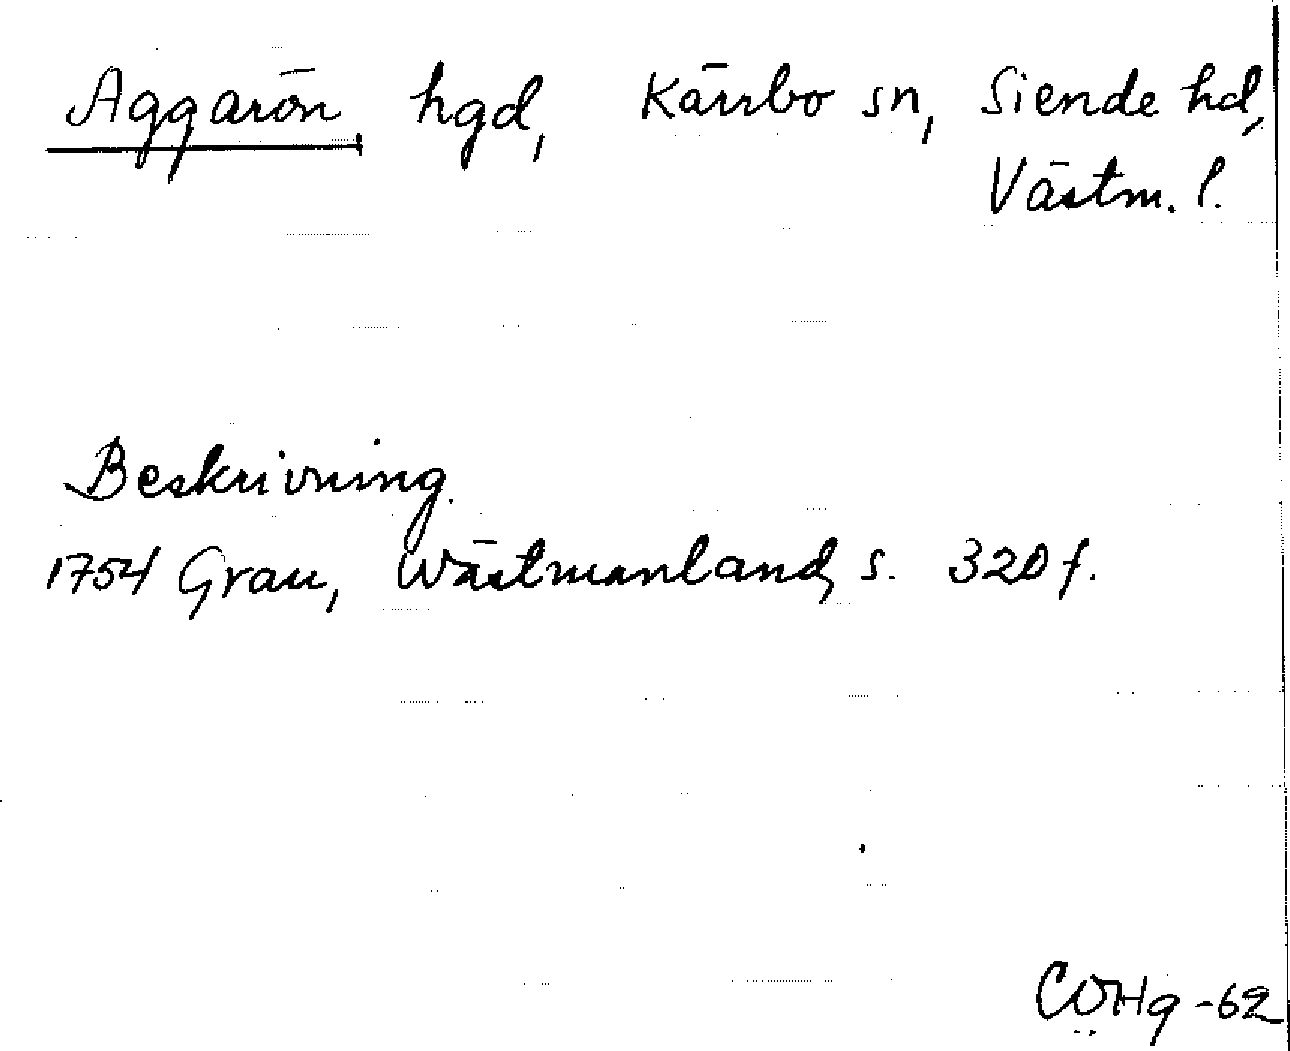 Aggarön hgd, Kärrbo sn, Siende hd,
Västm. l.
Beskrivning.
1754 Grau, Wästmanland, s. 320 f.
-62